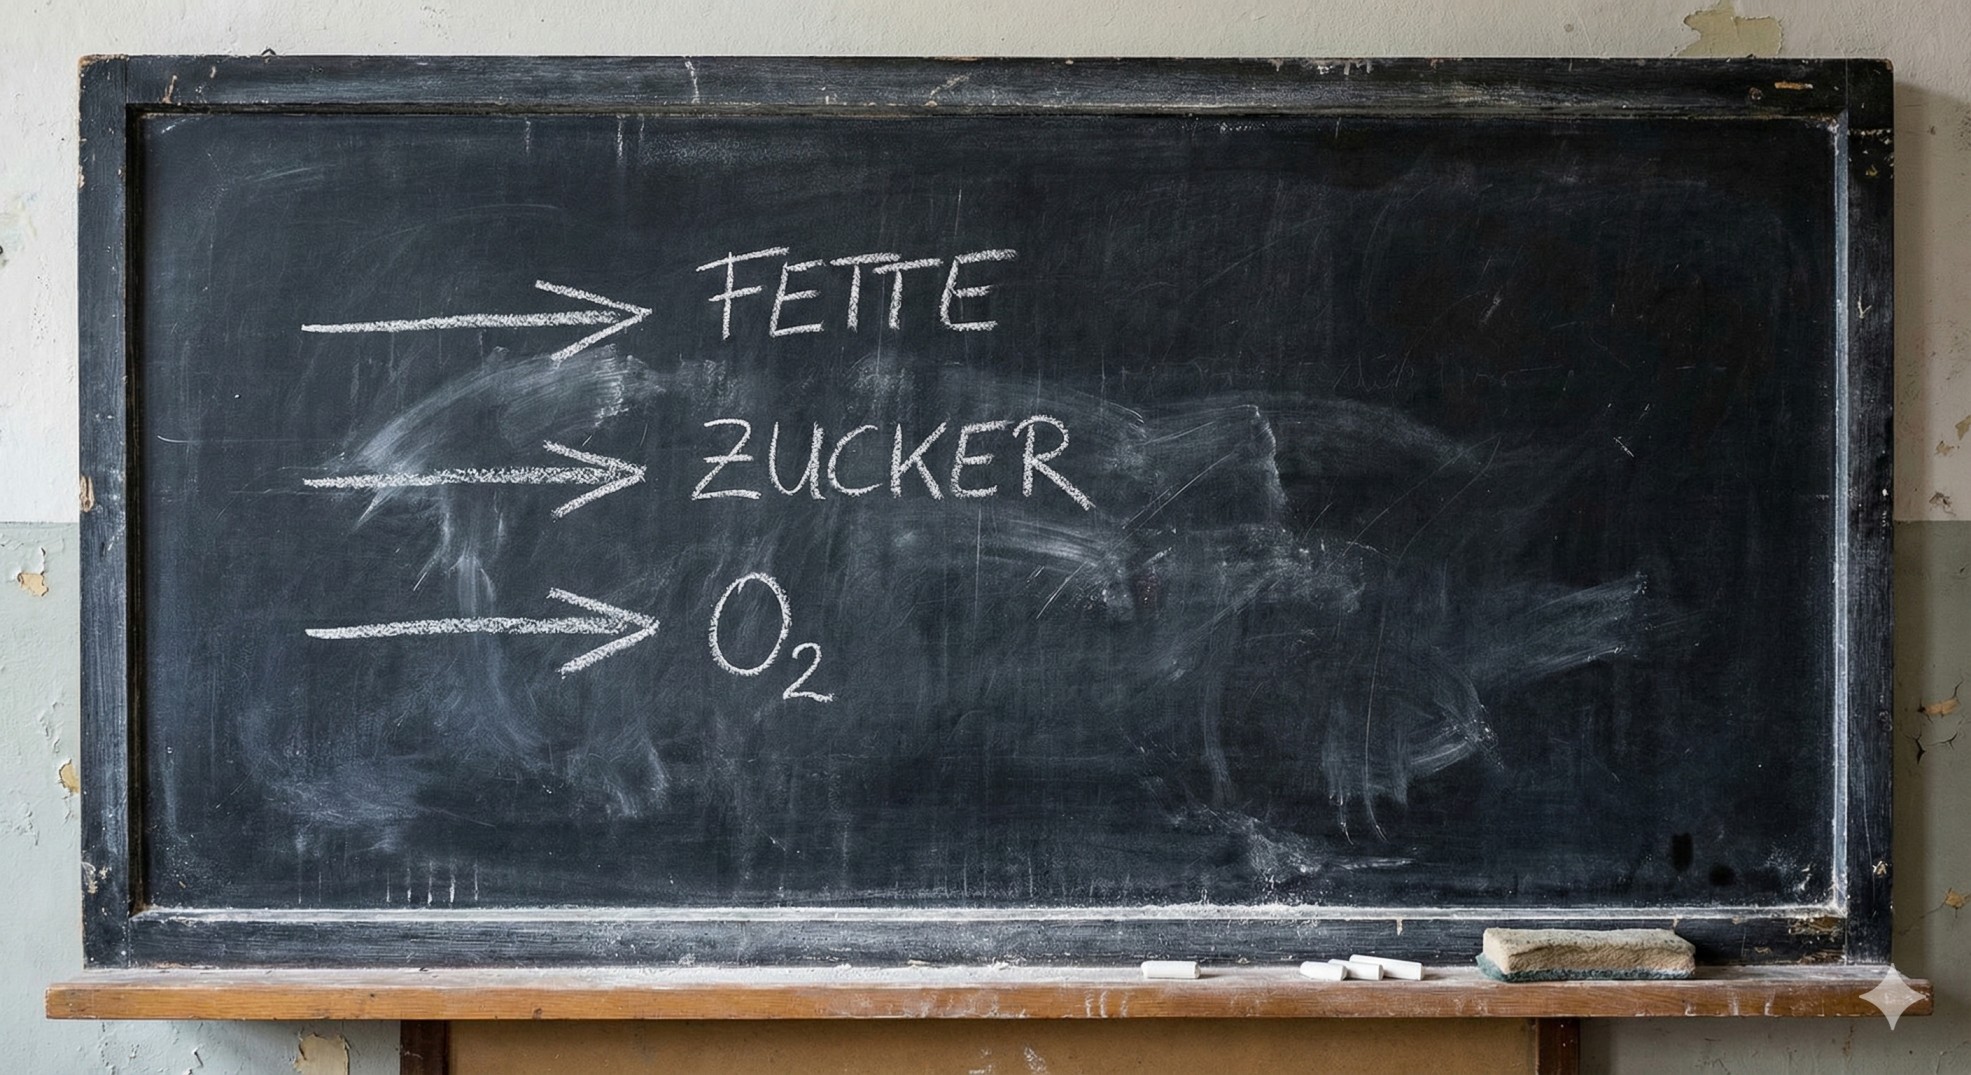 → FETTE
→ ZUCKER
→ O₂